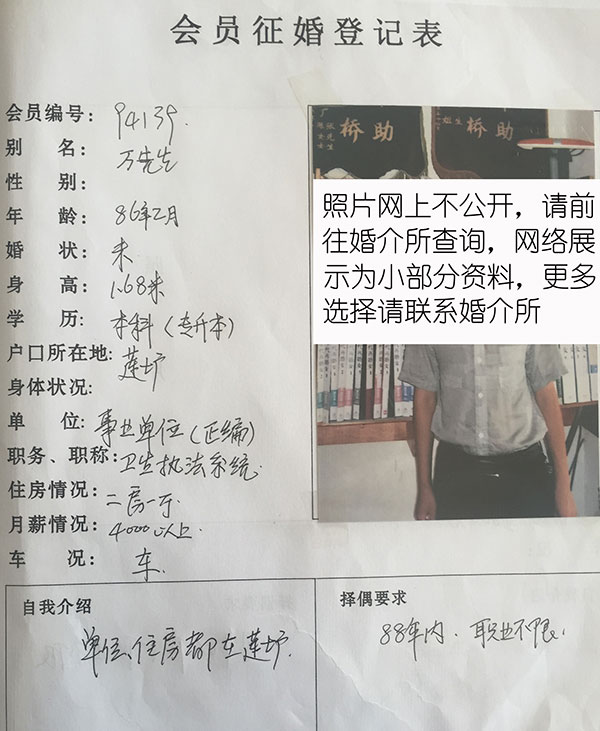 会员征婚登记表
会员编号: 94139.
别 名: 万先生
性 别:
年 龄: 86年2月
婚 状: 未
身 高: 1.68米
学 历: 本科(专升本)
户口所在地: 莲坂
身体状况:
单 位: 事业单位(正编)
职务、职称: 卫生执法系统.
住房情况: 二房一厅
月薪情况: 4000以上.
车 况: 车.
助桥
助桥
照片网上不公开，请前
往婚介所查询，网络展
示为小部分资料，更多
选择请联系婚介所
自我介绍
单位、住房都在莲坂.
择偶要求
88年内. 职业不限.